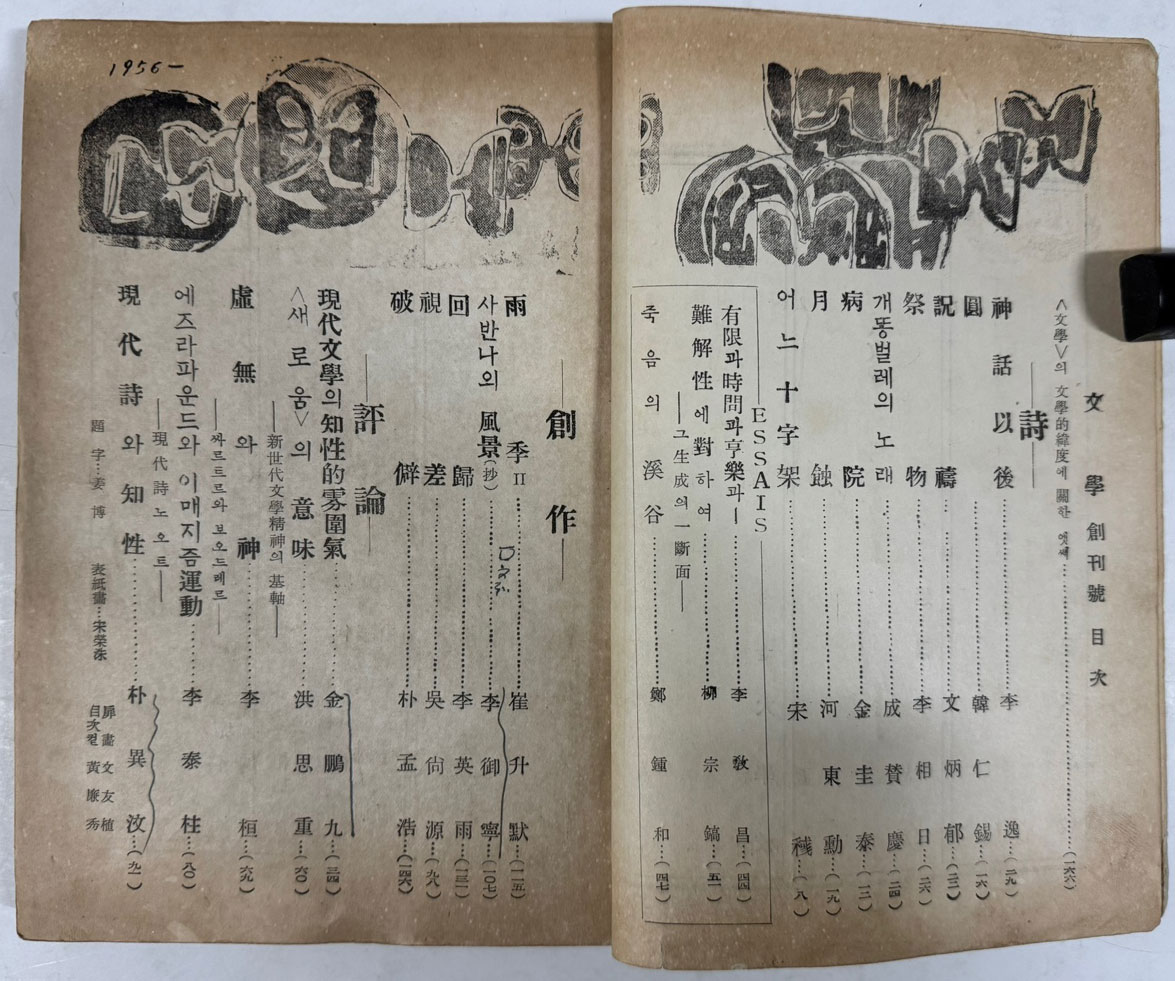 文學 創刊號 目次
<文學>의 文學的緯度에 關한 엣쎄……(一六六)
—詩—
神話以後……李逸…(二九)
圓……韓仁錫…(一六)
祝禱……文炳郁…(二二)
祭物……李相日…(二六)
개똥벌레의 노래…成贊慶…(二四)
病院……金圭泰…(一二)
月蝕……河東勳…(一九)
어느 十字架……宋稶…(八)
—ESSAIS—
有限과時間과享樂과—……李敎昌…(四四)
難解性에對하여……柳宗鎬…(五一)
—그生成의一斷面—
죽음의 溪谷……鄭鍾和…(四七)
1956—
—創作—
雨季 II……崔升默…(一一五)
사반나의 風景(抄)……李御寧…(一〇七)
回歸……李英雨…(一三一)
視差……吳尙源…(九八)
破僻……朴孟浩…(一四六)
—評論—
現代文學의知性的雰圍氣……金鵬九…(三四)
<새로움>의 意味……洪思重…(六〇)
—新世代文學精神의 基軸—
虛無와 神……李桓…(六九)
—싸르트르와 보오드레르—
에즈라파운드와 이매지즘運動……李泰柱…(八〇)
現代詩와 知性……朴異汶…(九一)
—現代詩노오트—
題字…姜博
表紙畵…宋榮洙
扉畵 文友植
目次컽 黃廉秀